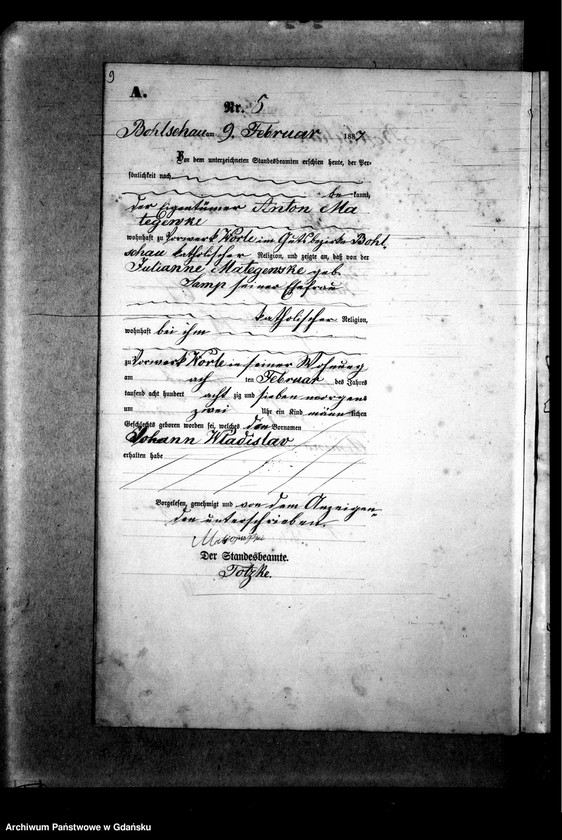 9
A.
Nr. 5
Bohlschau am 9. Februar 1887
Vor dem unterzeichneten Standesbeamten erschien heute, der Per-
sönlichkeit nach
be kannt,
der Eigentümer Anton Ma
tegewske
wohnhaft zu Vorwerk Worle im Gutsbezirke Bohl-
schau katholischer Religion, und zeigte an, daß von der
Julianne Mategewske geb.
seiner Ehefrau
katholischer Religion,
wohnhaft bei ihm
zu Vorwerk Worle in seiner Wohnung
am ach ten Februar des Jahres
tausend acht hundert acht zig und sieben morgens
um zwei Uhr ein Kind männ lichen
Geschlechts geboren worden sei, welches den Vornamen
Johann Wladislav
erhalten habe
Vorgelesen, genehmigt und von dem Anzeigen-
den unterschrieben
Der Standesbeamte.
Totzke.
Archiwum Państwowe w Gdańsku